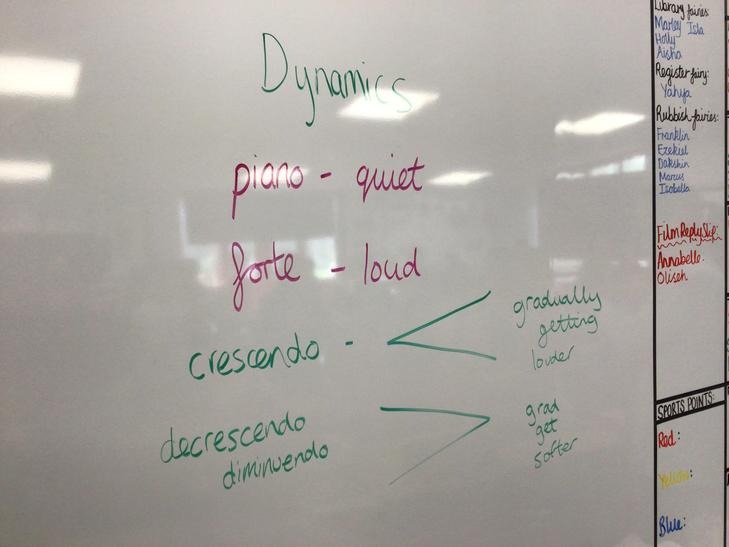 Dynamics
piano - quiet
forte - loud
crescendo -
gradually
getting
louder
decrescendo
diminuendo
grad
get
softer
Library fairies:
Marley Isla
Holly
Aisha
Register fairy:
Yahya
Rubbish fairies:
Franklin
Ezekiel
Dakshin
Marcus
Isobella
Film Reply Slip:
Annabelle.
Oliseh
SPORTS POINTS:
Red:
Yellow:
Blue: